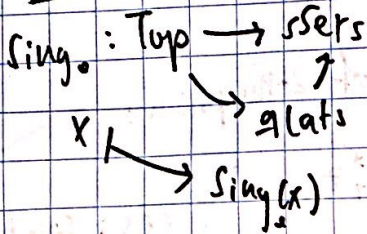 Sing. : Top → sSets
↘ qCats ↑
X ↦ Sing.(X)